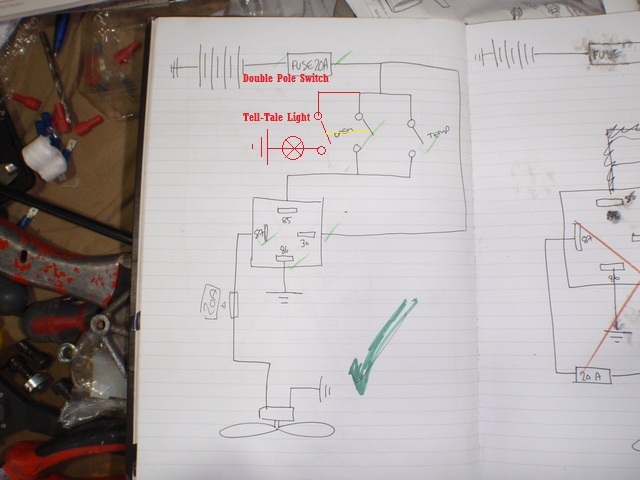 FUSE 20A
Double Pole Switch
Tell-Tale Light
TEMP
85
87
30
86
20A
FUSE
87
86
20A